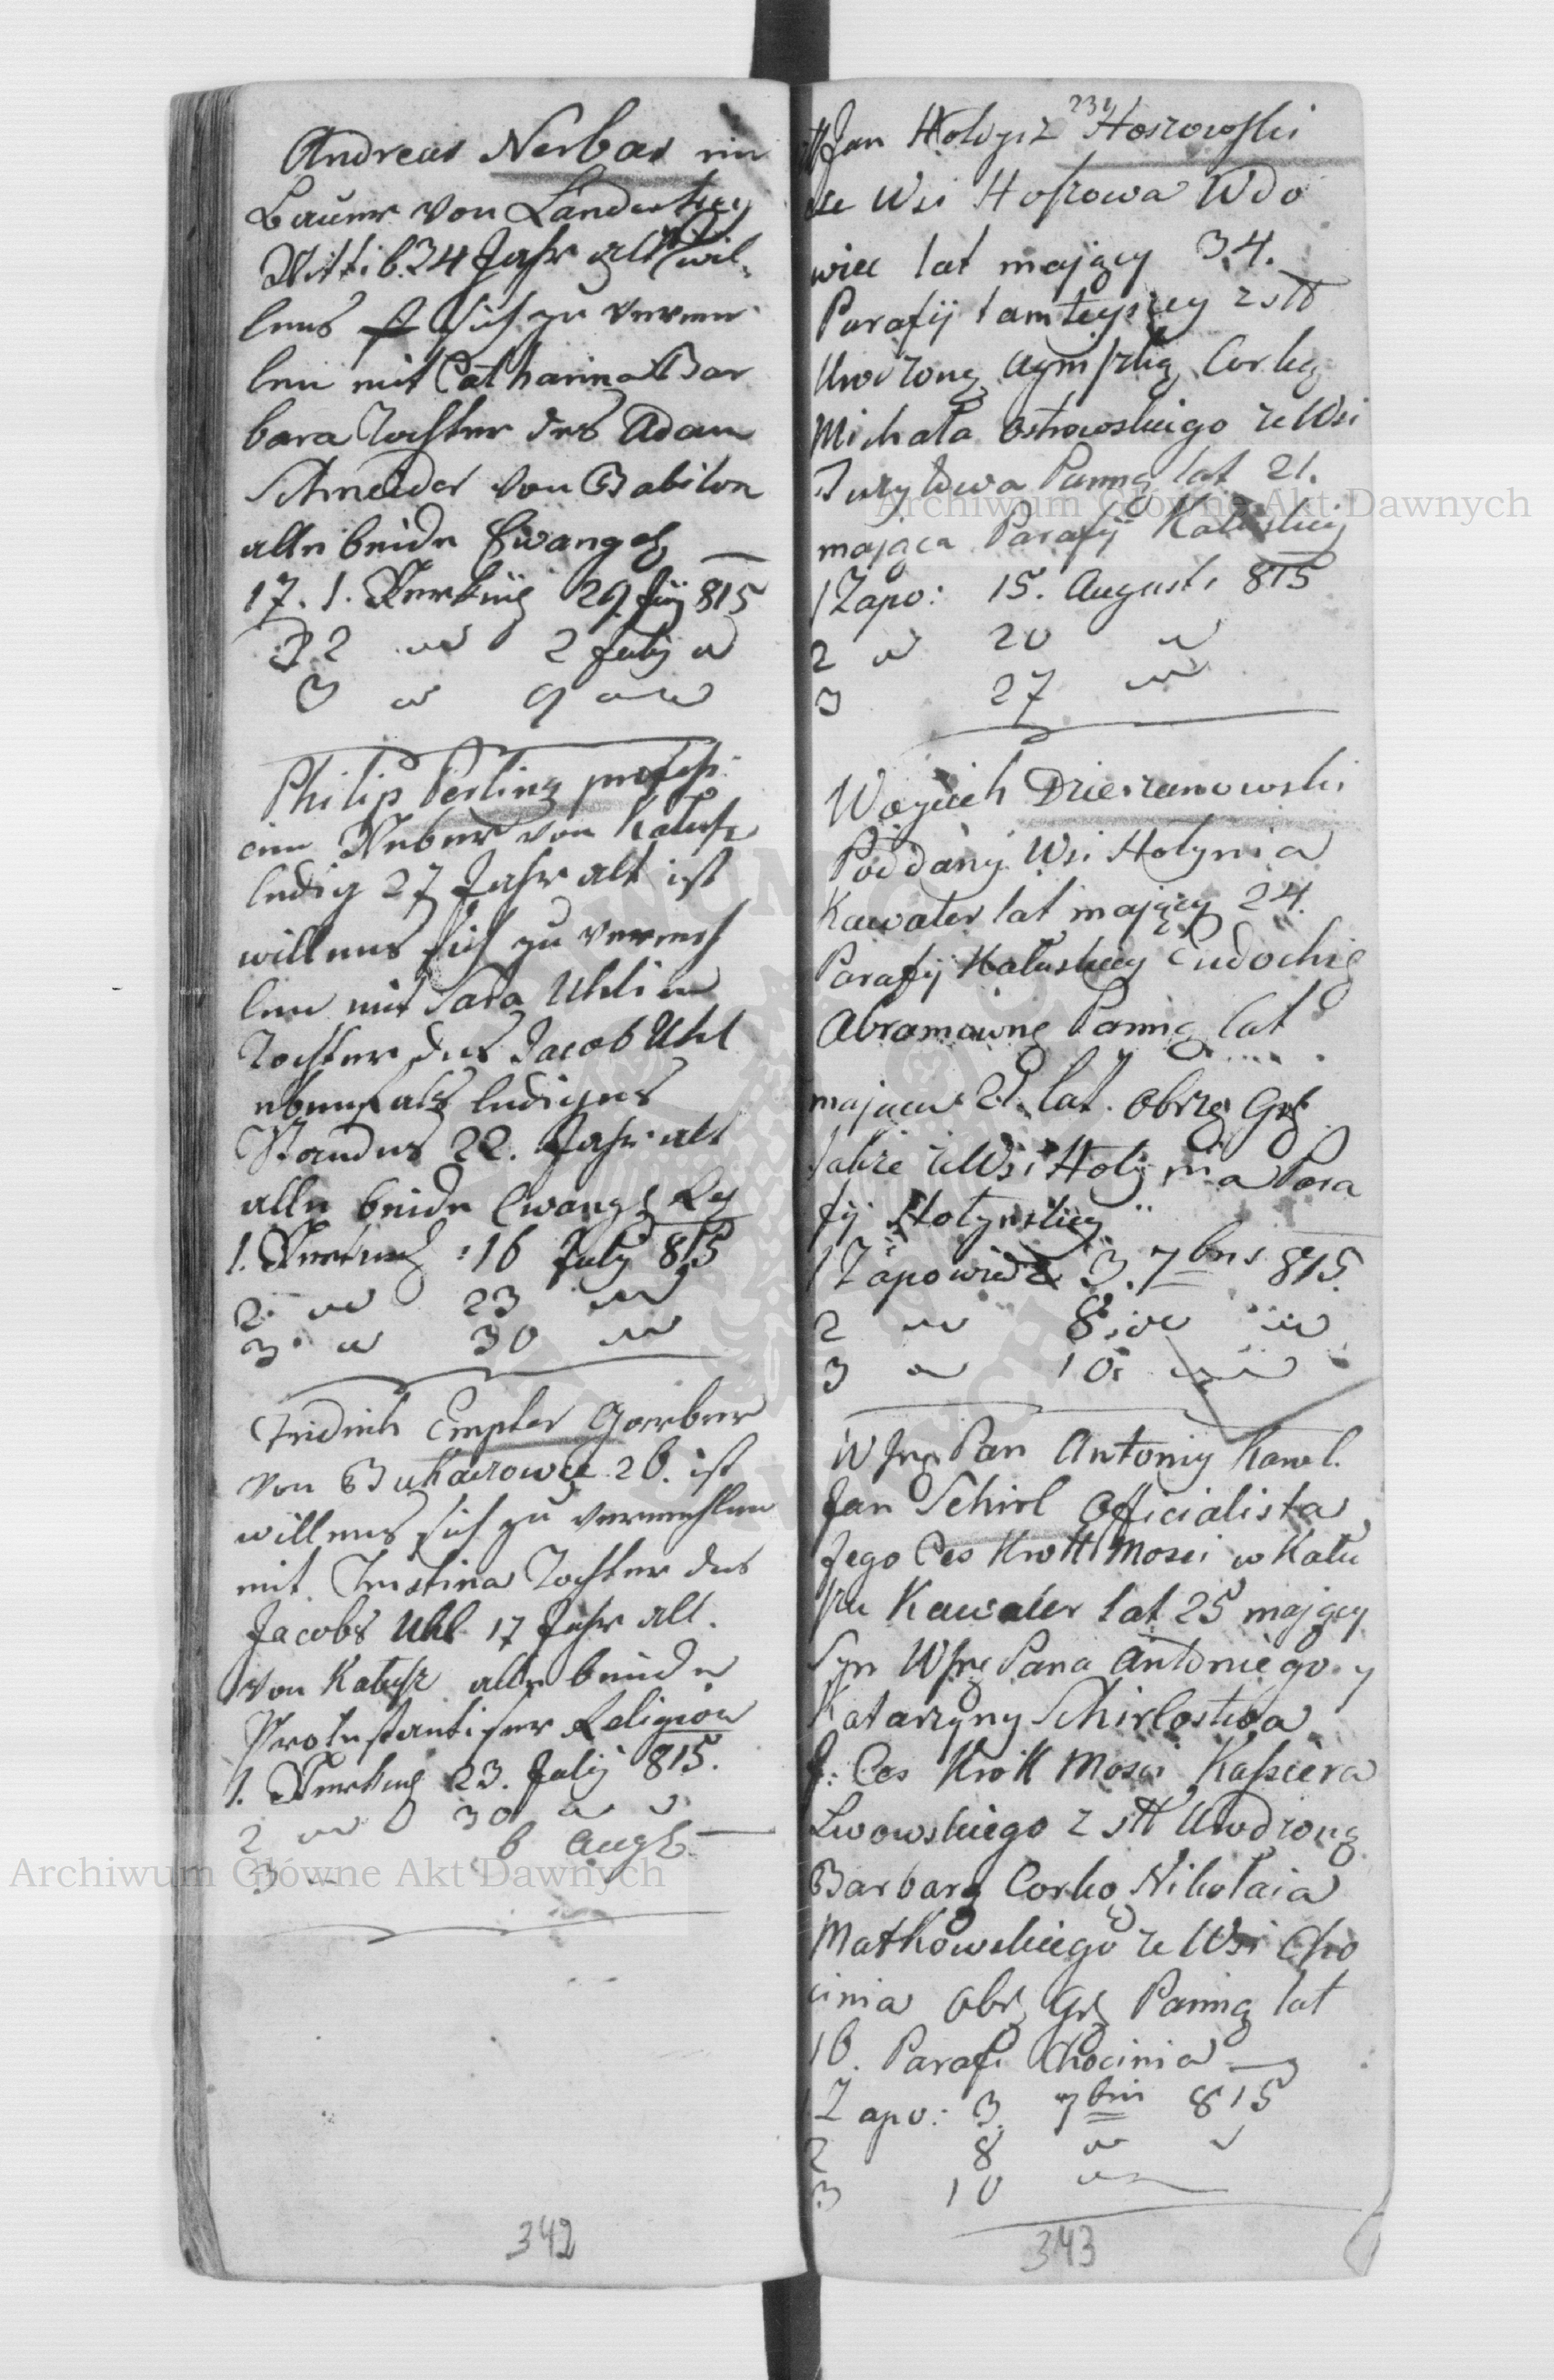 Andreas Nerbas ein
Bauer von Landestreu
Wittib. 34 Jahr alt wil¬
lens sich zu verme
len mit Catharina Bar
bara Tochter des Adam
Schneider von Babilon
alle beide Ewangeh
17. 1. Verkün 29. Juny 815
2 2 " 2 July "
3 " 9 "
Philip Perling profess:
ein Weber von Kalusz
ledig 27 Jahr alt ist
willens sich zu vermeh
len mit Sara Uhlin
Tochter des Jacob Uhl
ebenfals lediges
Standes 22. Jahr alt
alle beide Ewangh Rg
1. Verkünd : 16 July 815
2. " 23 "
3. " 30 "
Fridrich Empler Gaerber
von Bukaczowce 26. ist
willens sich zu vermehlen
mit Tochter des
Jacobs Uhl 17 Jahr alt.
von Kalusz alle beide
Protestantischer Religion
1. Verkünd 23. July 815.
2 " 30 " "
3 " 6 Augt.
231
Jan Hoszowski
ze Wsi Hoszowa Wdo
wiec lat mający 34.
Parafij tamteyszey z stt
Urodzoną Corką
Michała Ostrowskiego ze Wsi
Panną lat 21.
mająca Parafij Kałuskiey
1 Zapo: 15. Augusti 815
2 " 20 "
3 27 "
Woyciech Dzierzanowski
Poddany Wsi Hołynia
Kawaler lat mający 24.
Parafij Kałuskiey Eudochię
Abramownę Pannę lat
mająca 21. lat. obrzę Grk
także ze Wsi Hołynia Para
fij Hołynskiey
1 Zapowiedz 3. 7bris 815.
2 " 8. " "
3 " 10. "
W Jmc Pan Antoniy Karol.
Jan Schirl Officialista
Jego Ces Krott Mosci w Kału
szu Kawaler lat 25 mający
Syn WJmc Pana Antoniego y
Katarzyny Schirlostwa
J: Ces Krolk Mosci Kassiera
Lwowskiego z stt Urodzoną
Barbarą Corko Nikołaia
Matkowskiego ze Wsi Cho
cinia obrz Grk Panną lat
16. Parafi Chocinia
1 Zapo: 3. 7bris 815
2 8 " "
3 10 "
342
343
Archiwum Główne Akt Dawnych
Archiwum Główne Akt Dawnych